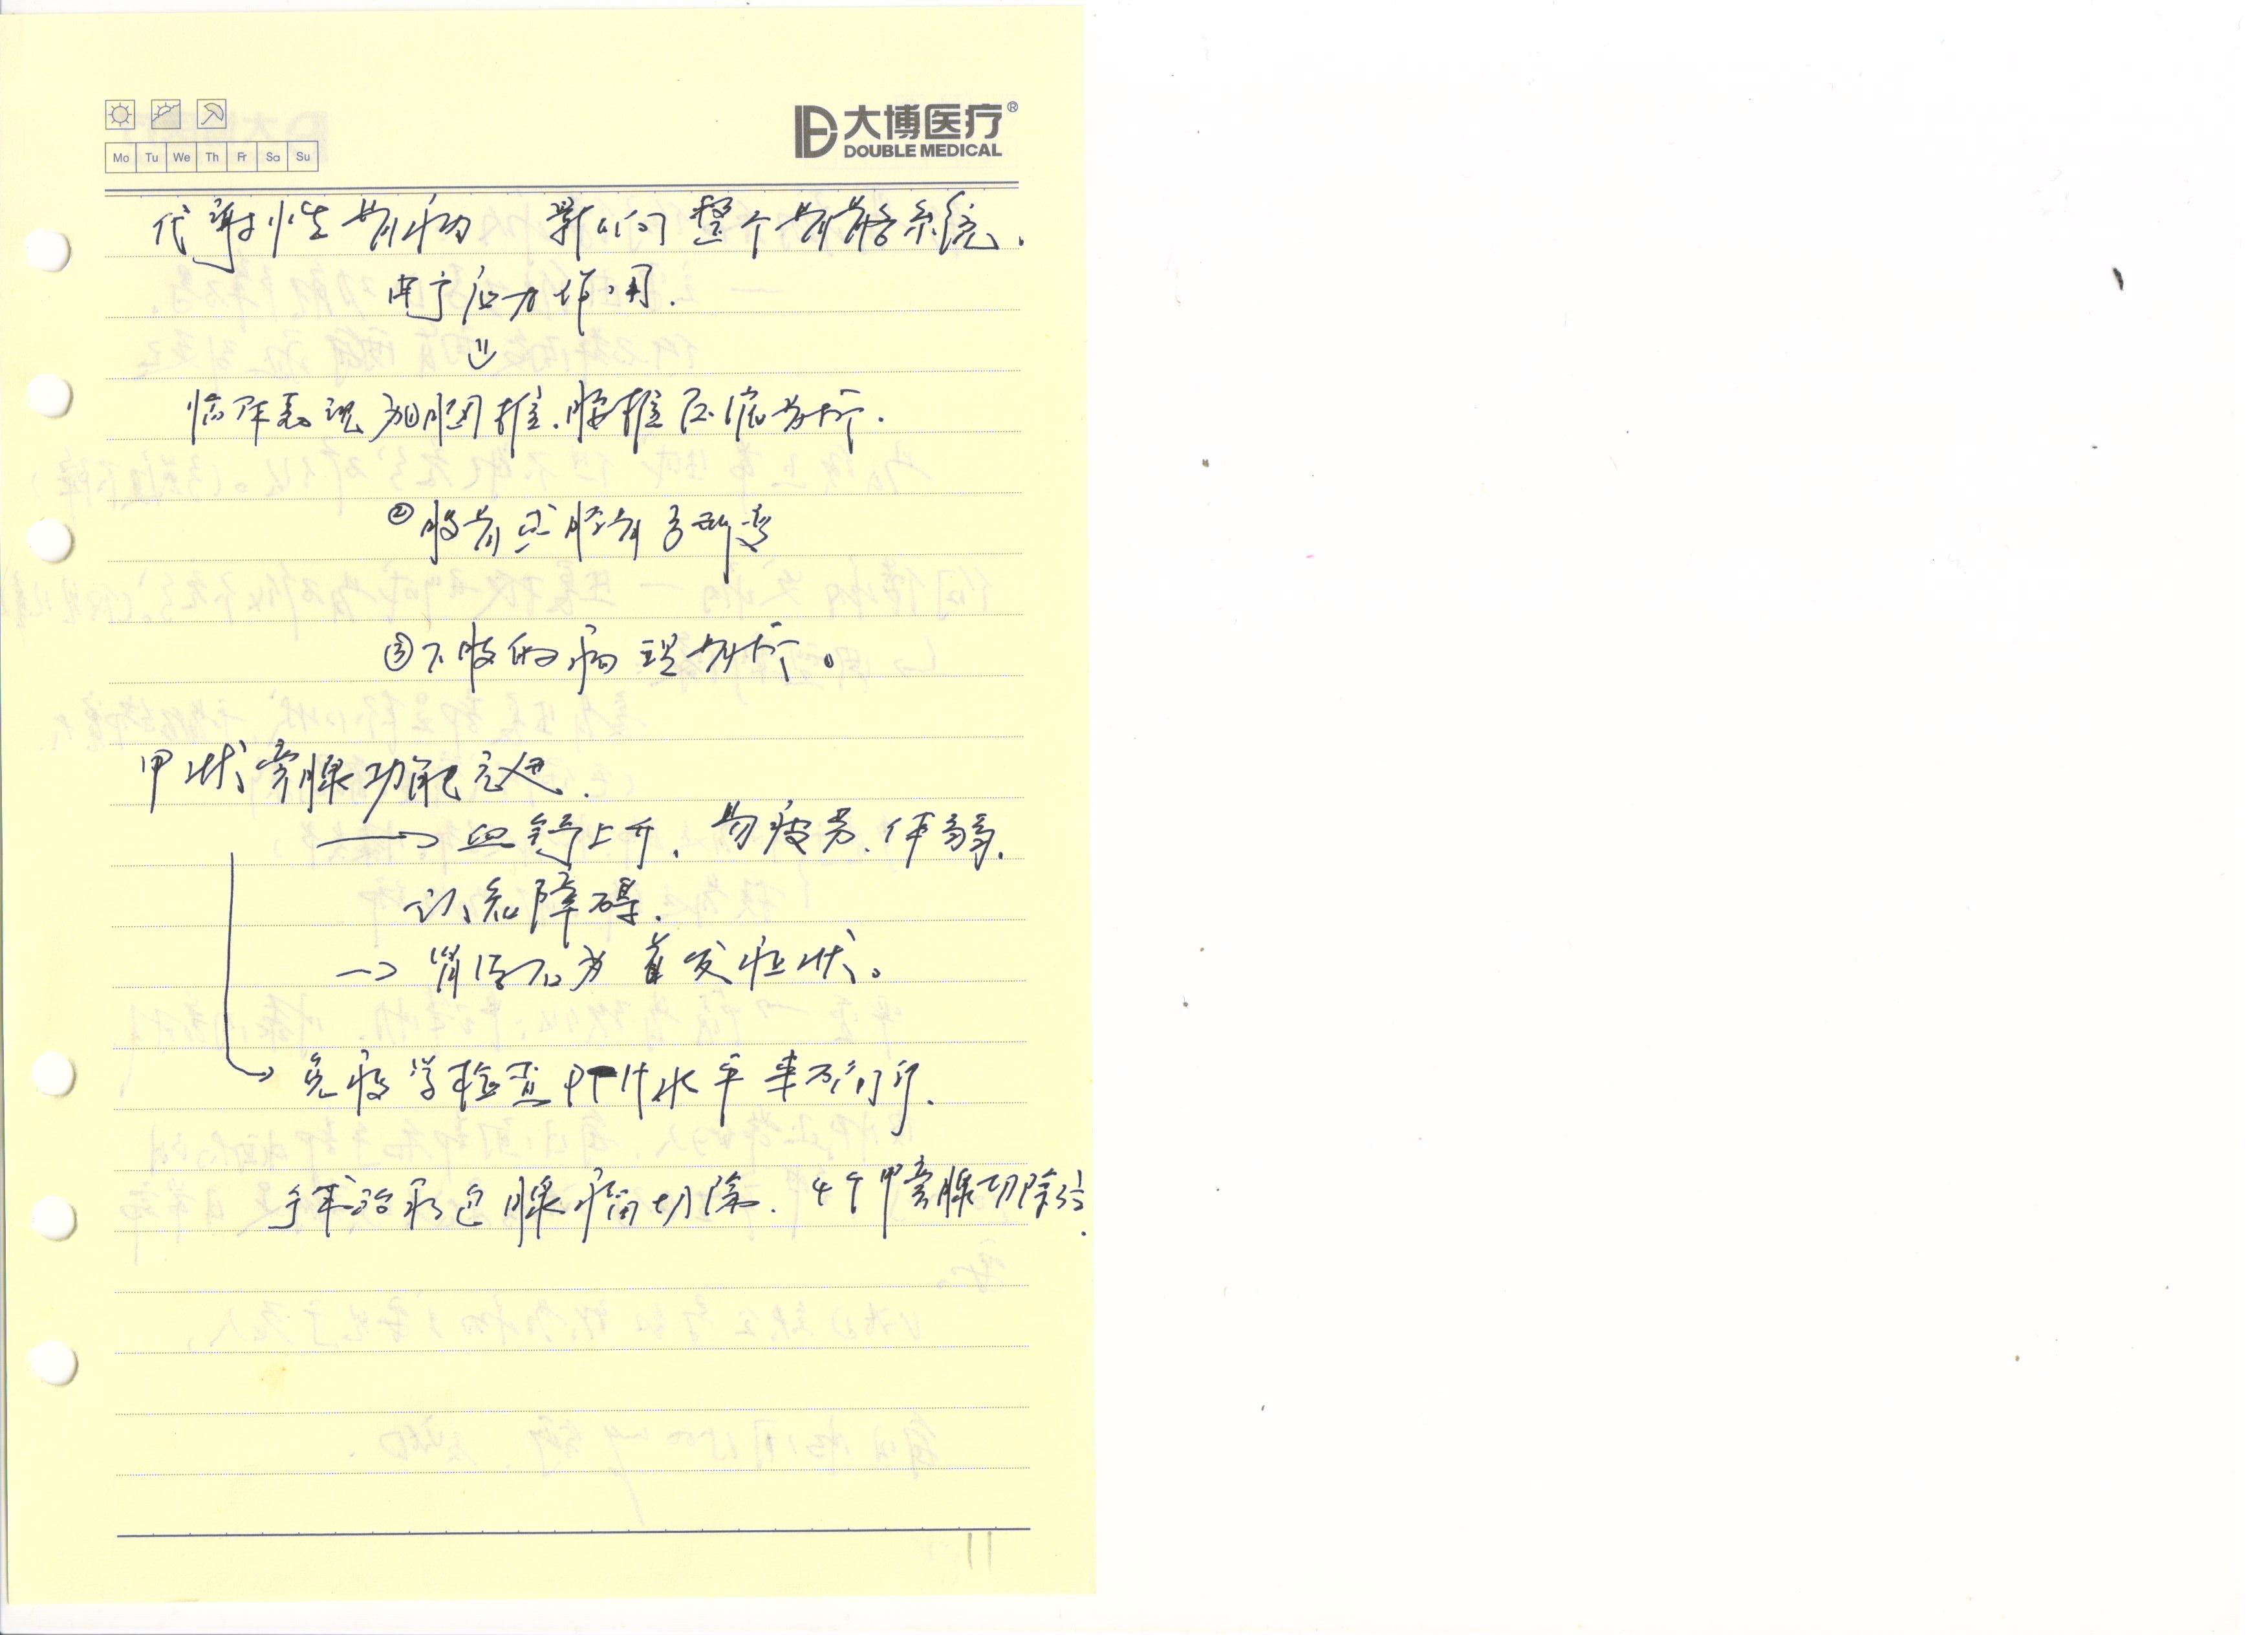 大博医疗®
DOUBLE MEDICAL
Mo Tu We Th Fr Sa Su
代谢性骨病 影响整个骨骼系统.
由于应力作用.
临床表现 胸椎、腰椎压缩骨折.
②股骨或胫骨弓形弯
③下肢的病理骨折。
甲状旁腺功能亢进.
→ 血钙上升、易疲劳、体弱.
认知障碍.
→ 肾结石为首发症状。
免疫学检查PTH水平来诊断.
手术治疗包腺瘤切除. 4个甲旁腺切除
11